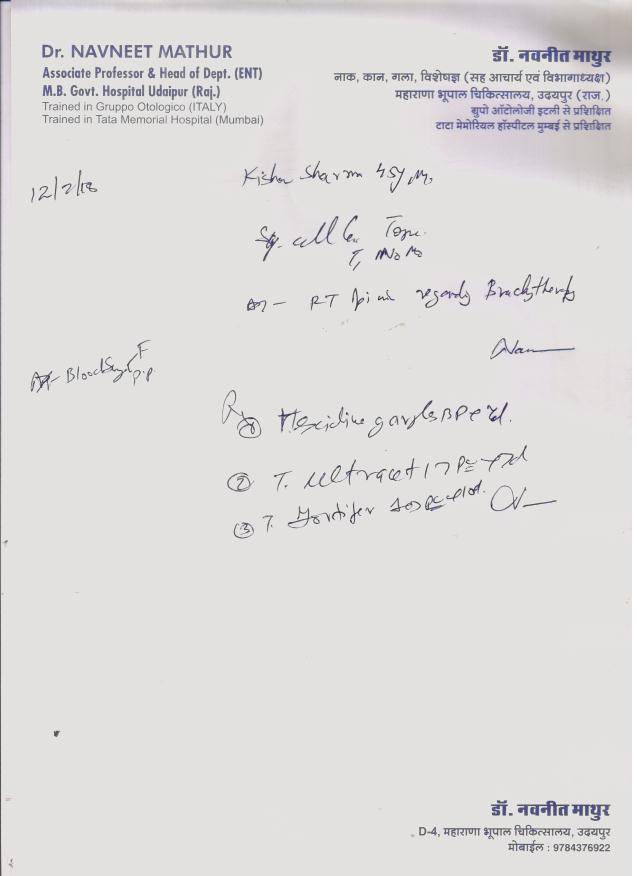 Dr. NAVNEET MATHUR
Associate Professor & Head of Dept. (ENT)
M.B. Govt. Hospital Udaipur (Raj.)
Trained in Gruppo Otologico (ITALY)
Trained in Tata Memorial Hospital (Mumbai)
डॉ. नवनीत माथुर
नाक, कान, गला, विशेषज्ञ (सह आचार्य एवं विभागाध्यक्ष)
महाराणा भूपाल चिकित्सालय, उदयपुर (राज.)
ग्रुपो ऑटोलोजी इटली से प्रशिक्षित
टाटा मेमोरियल हॉस्पीटल मुम्बई से प्रशिक्षित
12/2/18
Sharma 45y
Sq. cell Ca
T1 N0 M0
RT regarding Brachytherapy
Blood Sugar F
P.P.
Rx
① Hexidine gargles
② T. Ultracet
③ T.
डॉ. नवनीत माथुर
D-4, महाराणा भूपाल चिकित्सालय, उदयपुर
मोबाईल : 9784376922